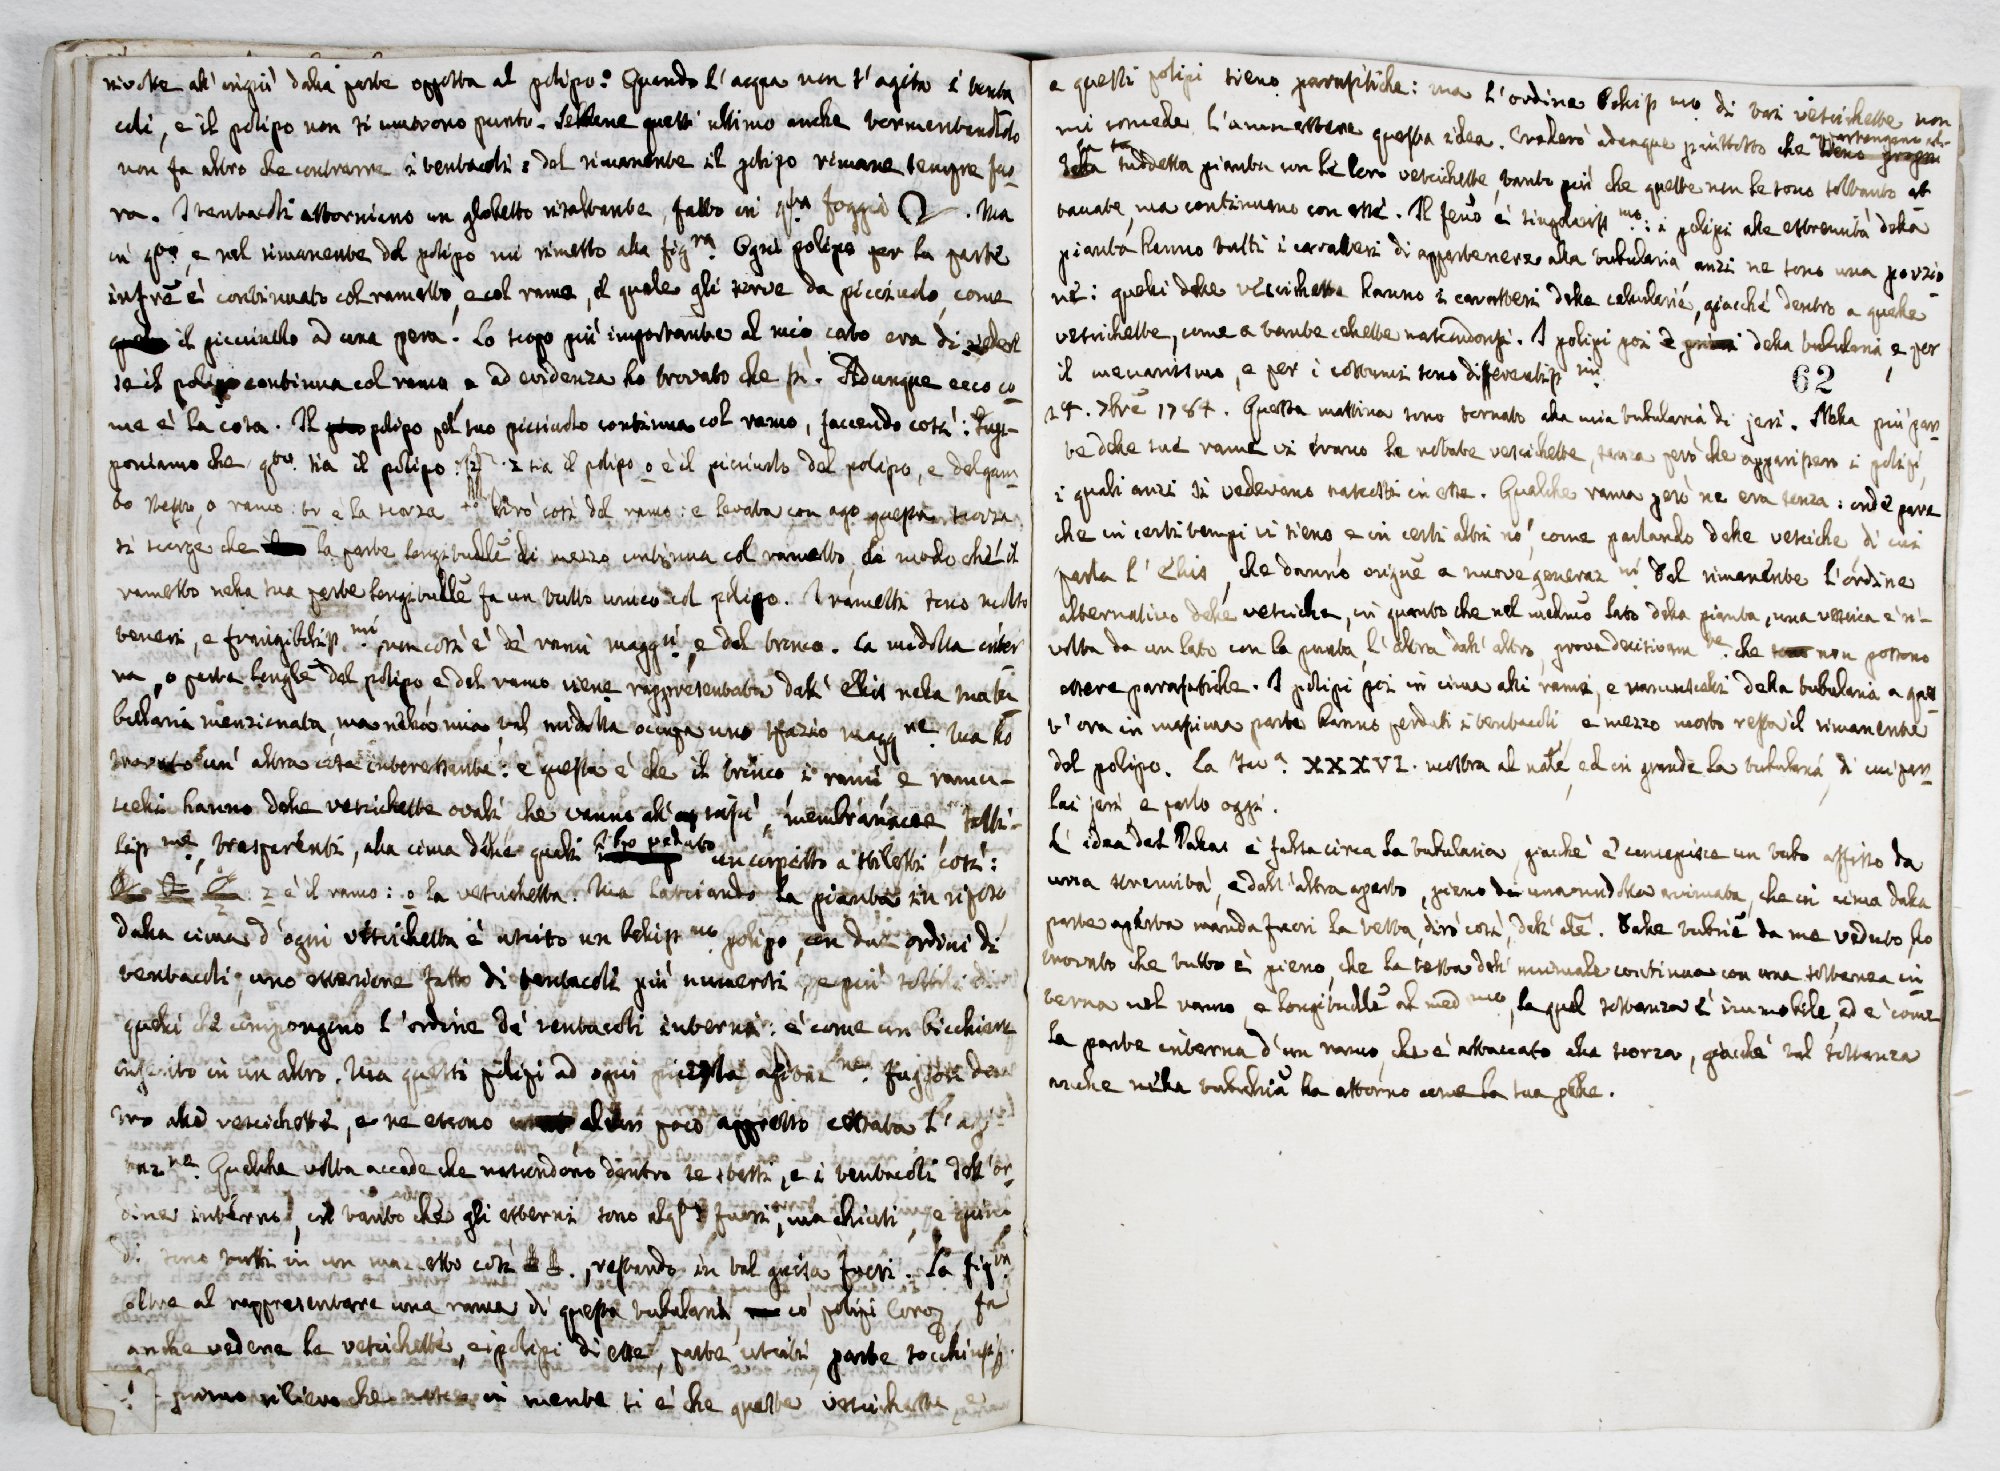 rivolte all'ingiù dalla parte opposta al polipo. Quando l'acqua non s'agita i tenta
coli, e il polipo non si muovono punto. Sebbene quest'ultimo anche tormentandolo
non fa altro che contrarre i tentacoli: del rimanente il polipo rimane sempre fuo
ra. I tentacoli attorniano un globetto risaltante, fatto in qta foggia . Ma
in qto, e nel rimanente del polipo mi rimetto alla figra. Ogni polipo per la parte
infre è continuato col rametto, e col rame, il quale gli serve da picciuolo, come
il picciuolo ad una pera. Lo scopo più importante al mio caso era di vedere
se il polipo continua col ramo, e ad evidenza ho trovato che sì. Adunque ecco co
me è la cosa. Il polipo pel suo picciuolo continua col ramo, facendo così: sup-
poniamo che qto sia il polipo: z sia il polipo o è il picciuolo del polipo, e del gam
bo stesso, o ramo: è la scorza dirò così del ramo: e levata con ago questa scorza
si scorge che la parte longitudle di mezzo continua col rametto, di modo chè il
rametto nella sua parte longitudle fa un tutto unico col polipo. I rametti sono molto
teneri, e frangibiliss.mi, non così è de' rami maggri, e del tronco. La midolla inter
na, o parte longle del polipo e del ramo viene rappresentata dall'Ellis nella sua tu
bullaria menzionata, ma nella mia tal midolla occupa uno spazio magg.re. Ma ho
trovato un'altra cosa interessante: e questa è che il tronco i rami e ramu-
scelli hanno delle vescichette ovali che vanno all'in su, membranacee, sotti-
liss.me, trasparenti, alla cima delle quali ho veduto un corpetto a stiletti così:
z è il ramo: o la vescichetta. Ma lasciando la pianta in riposo
dalla cima d'ogni vescichetta è uscito un belliss.mo polipo, con due ordini di
tentacoli, uno esteriore fatto di tentacoli più numerosi, e più sottili di
quelli che compongono l'ordine de' tentacoli interni: è come un bicchiere
inserito in un altro. Ma questi polipi ad ogni piccola agitaz.ne fuggon den
tro alle vescichette, e ne escono poco appresso cessata l'agi
taz.ne. Qualche volta accade che nascondono dentro se stessi, e i tentacoli dell'or
dine interno, nel tanto che gli esterni sono fuori, ma chiusi, e quin
di sono tutti in un mazzetto così , restando in tal guisa fuori. La figra
oltre al rappresentare una rama di questa tubularia co' polipi loro, fa
anche vedere le vescichette, e i polipi di esse, parte usciti, parte socchiusi.
primo rilievo che nasce in mente si è che queste vescichette, e
e questi polipi sieno parasitiche: ma l'ordine belliss.mo di tai vescichette non
mi concede l'ammettere questa idea. Crederò adunque piuttosto che appartengano al-
la suddetta pianta con le loro vescichette, tanto più che quelle non le sono soltanto at
taccate, ma continuano con esse. Il fenõ è singolariss.mo: i polipi alle estremità della
pianta hanno tutti i caratteri di appartenere alla tubularia anzi ne sono una porzio
ne: quelli delle vescichette hanno i caratteri delle cellularie, giacché dentro a quelle
vescichette, come a tante cellette nascondonsi. I polipi poi della tubularia, e per
il meccanismo, e per i costumi sono differentiss.mi
62
24. 7bre 1784. Questa mattina sono tornato alla mia tubularia di jeri. Nella più par
te delle sue rame vi erano le notate vescichette, senza però che apparissero i polipi,
i quali anzi si vedevano nascosti in esse. Qualche rama però ne era senza: onde pare
che in certi tempi vi sieno, e in certi altri no, come parlando delle vesciche di cui
parla l'Ellis, che danno origine a nuove generaz.ni Del rimanente l'ordine
alternativo delle vesciche, in quanto che nel medmo lato della pianta, una vescica è ri-
volta da un lato con la punta, l'altra dall'altro, prova decisivam.te che non possono
essere parasitiche. I polipi poi in cima alli rami, e ramuscelli della tubularia a ques
t'ora in massima parte hanno perduti i tentacoli e mezzo morto resta il rimanente
del polipo. La Tava. XXXVI. mostra al nale, ed in grande la tubularia, di cui par
lai jeri e parlo oggi.
L'idea del Pallas è falsa circa la tubularia, giacché e' concepisce un tubo affisso da
una stremità, e dall'altra aperto, pieno di una midolla animata, che in cima dalla
parte aperta manda fuori la testa, dirò così, dell'ale. Dalle tubrie da me veduto ho
trovato che tutto è pieno, che la testa dell'animale continua con una sostanza in
terna nel ramo, e longitudle al med.mo, la qual sostanza è immobile, ed è come
la parte interna d'un ramo che è attaccato alla scorza, giacché tal sostanza
anche nella tubularia ha attorno come la sua pelle.